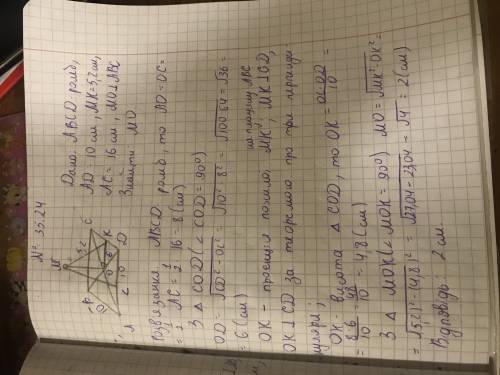 N° 35.24
M
5,2
B
C
K
O
10
D
A
Дано: ABCD - ромб,
AD = 10 см, MK = 5,2 см,
AC = 16 см, MO ⊥ ABC
Знайти MO
Розв'язання ABCD ромб, то AO = OC =
= 1/2 AC = 1/2 16 = 8 (см)
З △ COD (∠ COD = 90°)
OD = √CD² - OC² = √10² - 8² = √100-64 = √36 =
= 6 (см)
OK - проекція похилої MK на площину ABC, MK ⊥ CD,
OK ⊥ CD за теоремою про три перпенди
куляри;
OK - висота △ COD, то OK = OC·OD/10 =
= 8·6/10 = 48/10 = 4,8 (см)
З △ MOK (∠ MOK = 90°) MO = √MK² - OK² =
= √(5,2)² - (4,8)² = √27,04 - 23,04 = √4 = 2 (см)
Відповідь: 2 см.